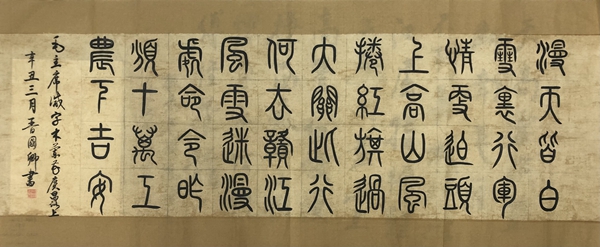 漫天皆白
雪裏行軍
情更迫頭
上高山風
捲紅旗過
大關此行
何去贛江
風雪迷漫
處命令昨
頒十萬工
農下吉安
毛主席減字木蘭花廣昌路上
辛丑三月晉國卿書